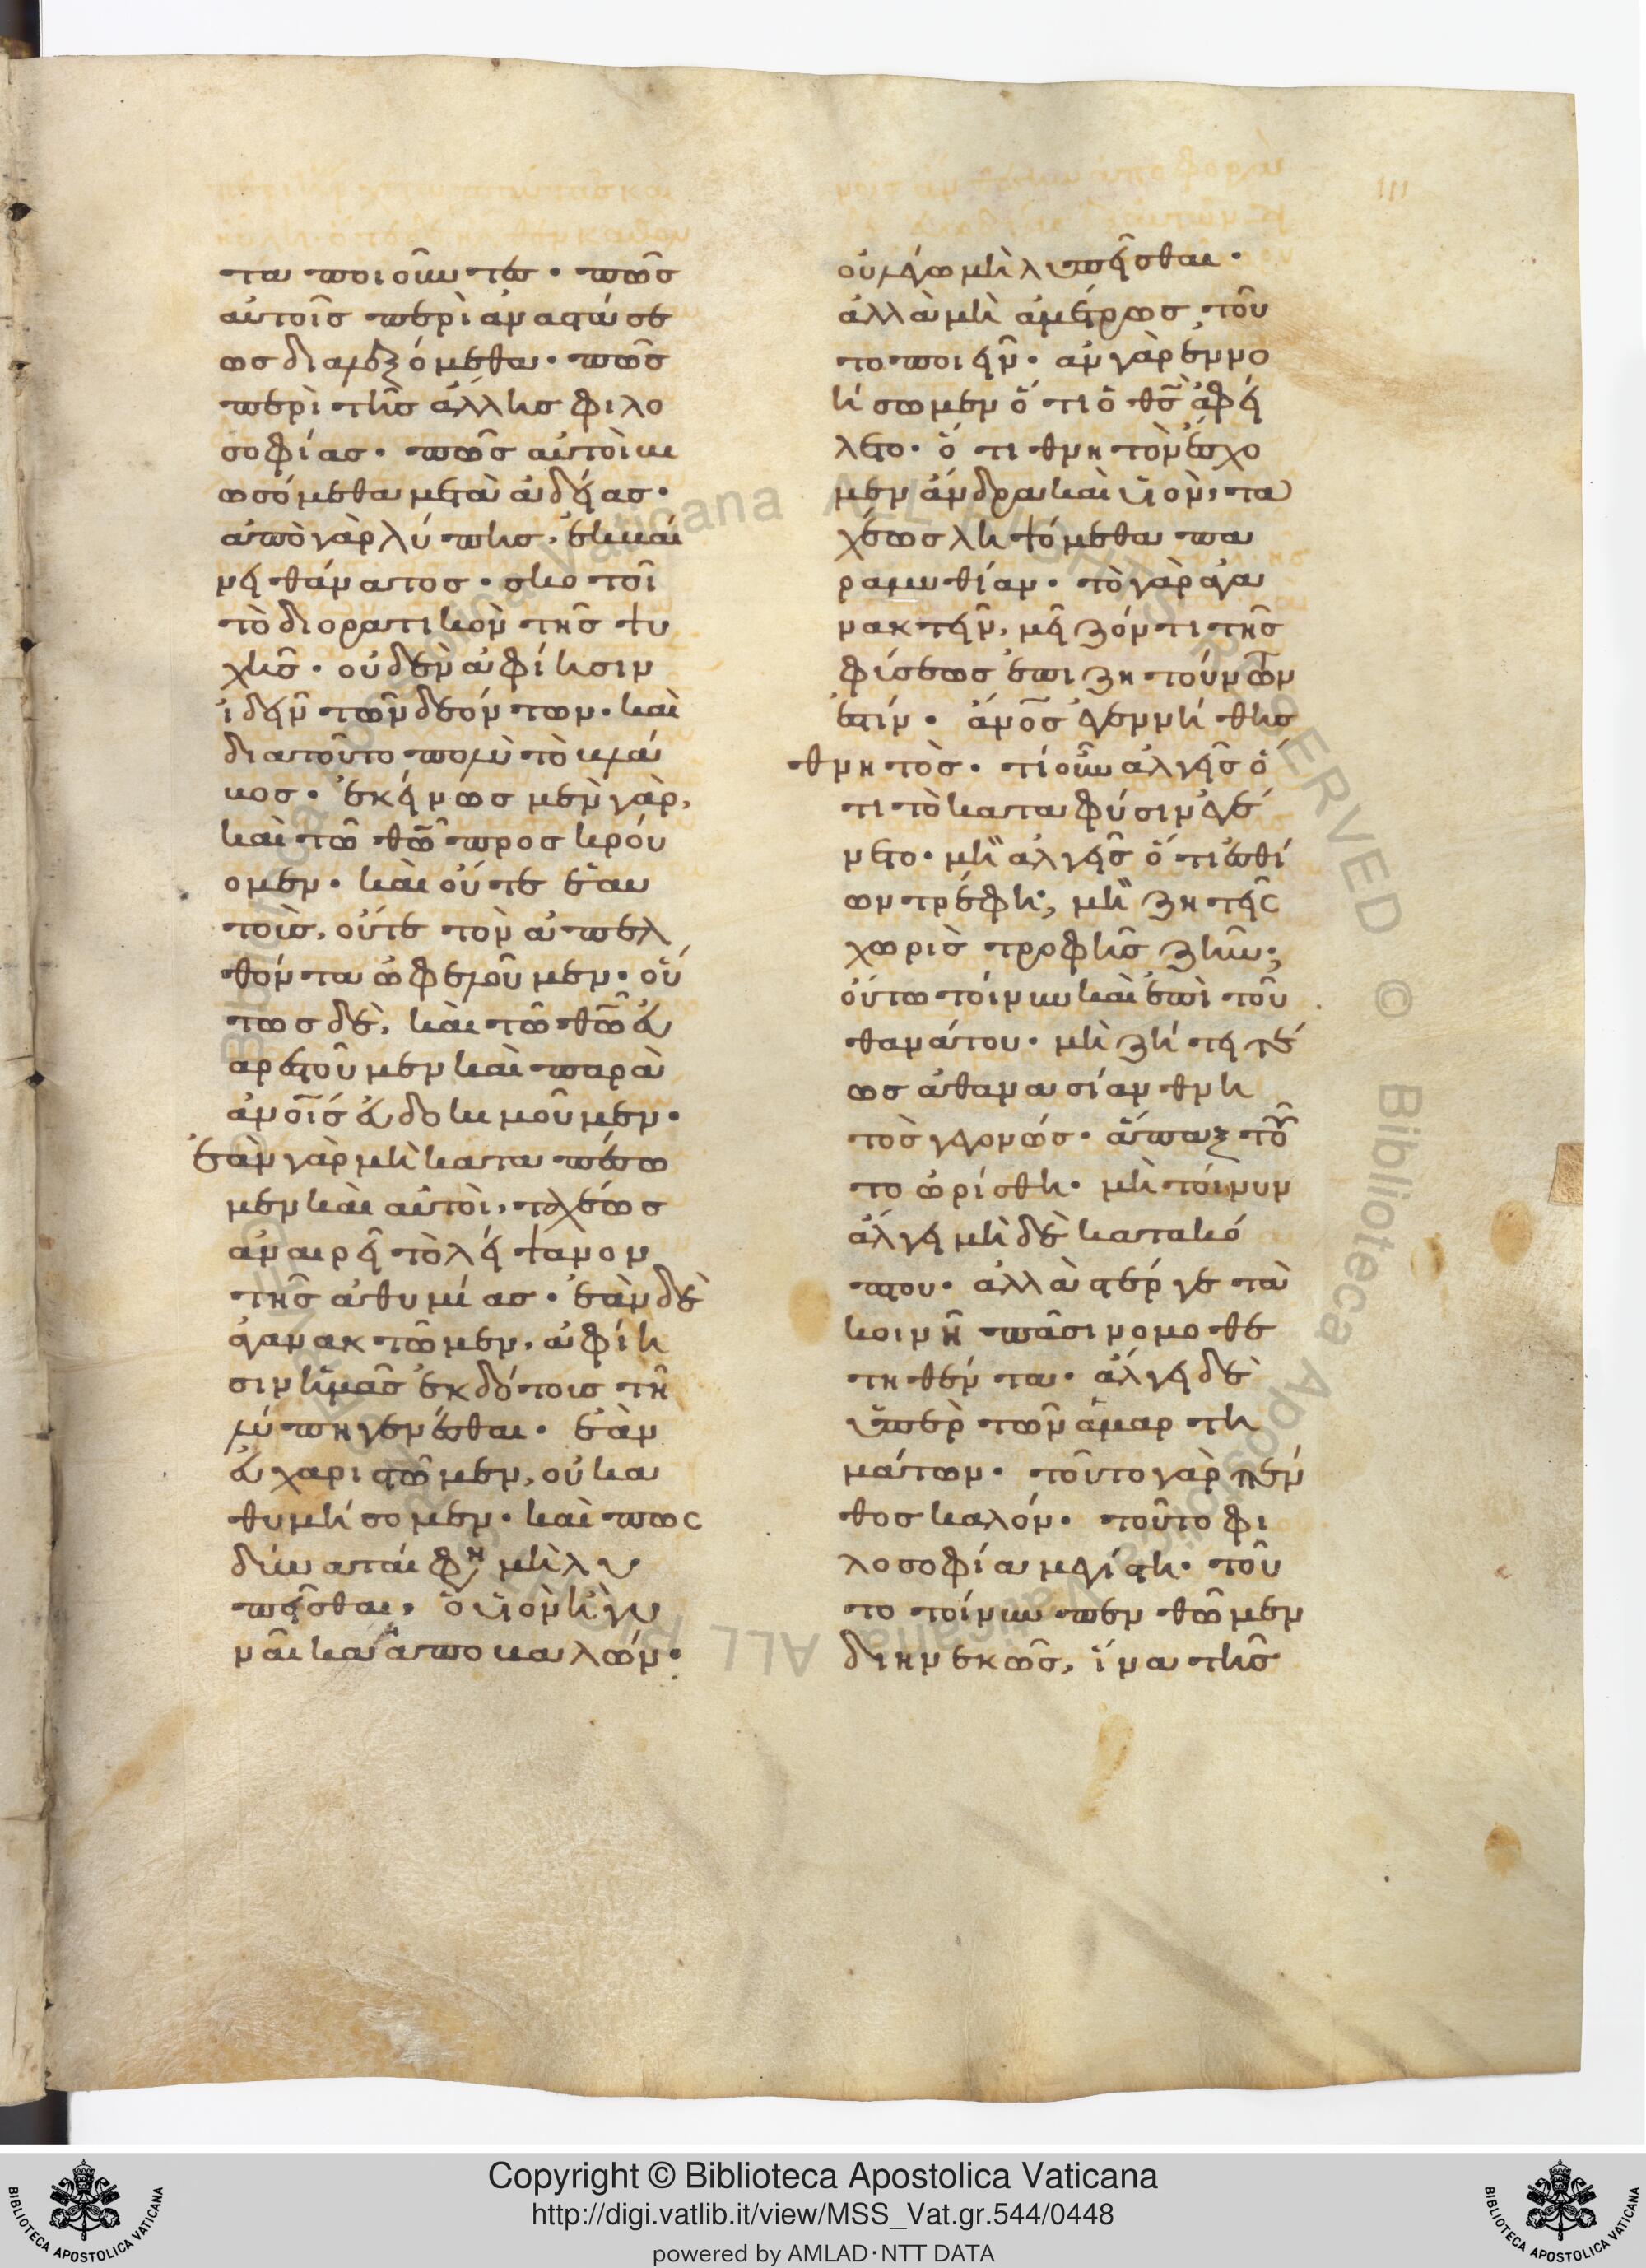 τα ποιοῦντες· πῶς
αὐτοῖς περὶ ἀναστάσε
ως διαλεξόμεθα· πῶς
περὶ τῆς ἄλλης φιλο
σοφίας· πῶς αὐτοὶ βι
ωσόμεθα μετὰ ἀδείας·
ἀπὸ γὰρ λύπης, ἐκβαί
νει θάνατος· σκοτοῖ
τὸ διορατικὸν τῆς ψυ
χῆς· οὐδὲν ἀφίησιν
ἰδεῖν τῶν δεόντων· καὶ
διατοῦτο πολὺ τὸ βλά
βος· ἐκείνως μὲν γὰρ,
καὶ τῶ θῶ προσκρού
ομεν· καὶ οὔτε ἑαυ
τοὺς, οὔτε τὸν ἀπελ
θόντα ὠφελοῦμεν· οὕ
τως δὲ, καὶ τῶ θῶ εὐ
αρεστοῦμεν καὶ παρὰ
ἀνοῖς εὐδοκιμοῦμεν·
ἐὰν γὰρ μὴ καταπέσω
μεν καὶ αὐτοὶ, ταχέως
ἀναιρεῖ τὸ λείψανον
τῆς ἀθυμίας· ἐὰν δὲ
ἀγανακτῶμεν, ἀφίη
σιν ἡμᾶς ἐκδότοις τῆ
λύπη γενέσθαι· ἐὰν
εὐχαριστῶμεν, οὐκ ἀ
θυμήσομεν· καὶ πως
δύναταί φη μὴ λυ
πεῖσθαι, ὁ υἱὸν ἢ γυ
ναῖκα ἀποβαλών·
οὐ λέγω μὴ λυπεῖσθαι·
ἀλλὰ μὴ ἀμέτρως τοῦ
το ποιεῖν· ἂν γὰρ ἐννο
ήσωμεν ὅτι ὁ θς ἀφεί
λετο· ὅτι θνητὸν ἔσχο
μεν ἄνδρα καὶ υἱὸν, τα
χέως ληψόμεθα πα
ραμυθίαν· τὸ γὰρ ἀγα
νακτεῖν, μεῖζόν τι τῆς
φύσεως ἐπιζητούντων
ἐστίν· ἄνος ἐγεννήθης
θνητὸς· τί οὖν ἀλγεῖς ὅ
τι τὸ κατα φύσιν ἐγέ
νετο· μὴ ἀλγεῖς ὅτι ἐσθί
ων τρέφη; μὴ ζητεῖς
χωρὶς τροφῆς ζῆν;
οὕτω τοίνυν καὶ ἐπὶ τοῦ
θανάτου· μὴ ζήτει τέ
ως ἀθανασίαν θνη
τὸς γενομένος· ἅπαξ τοῦ
το ὡρίσθη· μὴ τοίνυν
ἄλγει μὴ δὲ κατακό
πτου· ἀλλὰ στέργε τὰ
κοινῆ πᾶσι νομοθε
τηθέντα· ἄλγει δὲ
ὑπὲρ τῶν ἁμαρτη
μάτων· τοῦτο γὰρ πέν
θος καλόν· τοῦτο φι
λοσοφία μεγίστη· τοῦ
το τοίνυν πενθῶμεν
διηνεκῶς, ἵνα τῆς
Copyright © Biblioteca Apostolica Vaticana
http://digi.vatlib.it/view/MSS_Vat.gr.544/0448
powered by AMLAD·NTT DATA